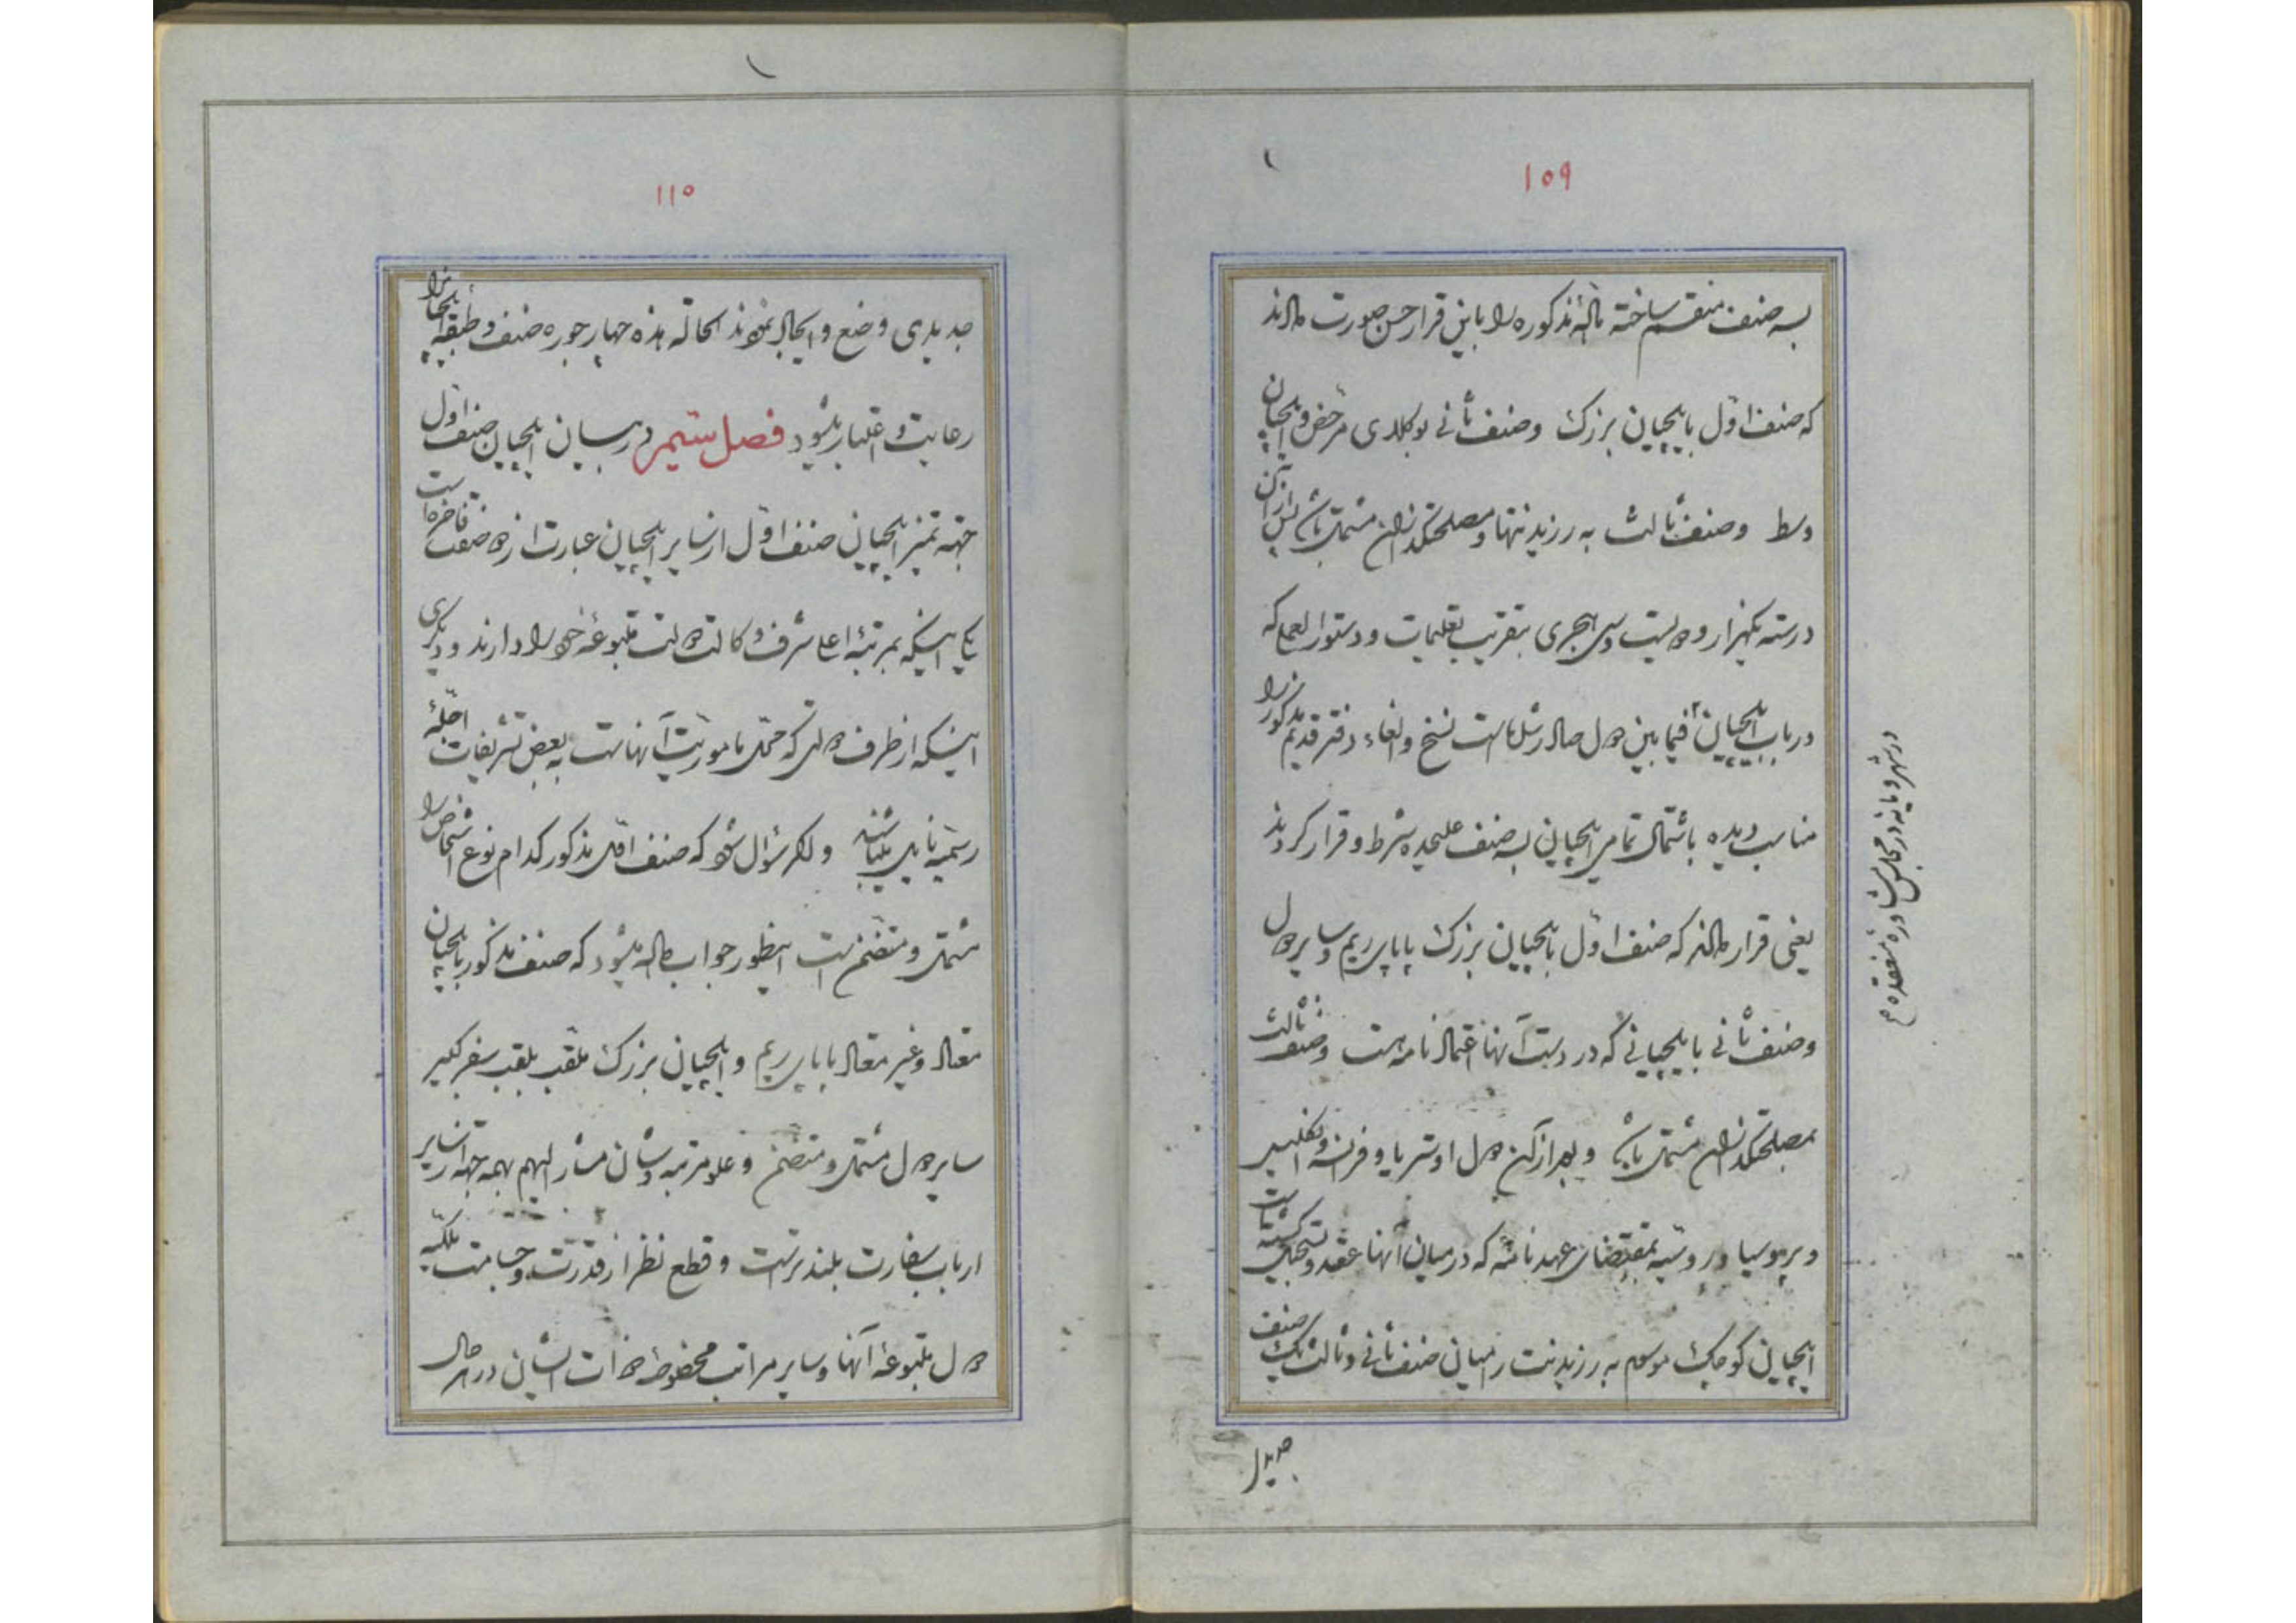 ۱۰۹
بسه صنف منقسم ساخته مادهٔ مذکوره را باین قرار حسن صورت دادند
که صنف اوّل بایلچیان بزرک و صنف ثانی بوکلای مرخص و ایلچیان
وسط و صنف ثالث به رزیدنتها و مصلحتکذاران مشتمل باشد پس از آن
در سنه یکهزار و دویست و سی هجری بتقریب تعلیمات و دستورالعملی که
در باب ایلچیان فیمابین دول صادر شده است نسخ و الغاء دفتر قدیم مذکور را
مناسب دیده باشتمال تمامی ایلچیان بسه صنف علیحده شرط و قرار کردند
یعنی قرار دادند که صنف اوّل بایلچیان بزرک پاپای ریم و سایر دول
و صنف ثانی بایلچیانی که در دست آنها اعتماد نامه هست و صنف ثالث
بمصلحتکذاران مشتمل باشد و بعد از آن دول اوستریا و فرانسه و انکلیس
و پروسیا و روسیه بمقتضای عهدنامهٔ که در میان آنها عقد و تسجیل کشته است
ایلچیان کوچک موسوم به رزیدنت را میان صنف ثانی و ثالث یک صنف
جدیدی
در شهر ویانه در مجلس مشاوره منعقده
۱۱۰
جدیدی وضع و ایجاد نمودند الحالة هذه چهار جوره صنف و طبقه ایلچیانرا
رعایت و اعتبار میشود فصل ستیم در بیان ایلچیان صنف اول
جهة تمیز ایلچیان صنف اوّل از سایر ایلچیان عبارت از دو صفت فاخره است
یکی اینکه بمرتبهٔ اعلی شرف وکالت دولت متبوعهٔ خود را دارند و دیکری
اینکه از طرف دولتی که محل ماموریت آنهاست به بعض تشریفات اجلّهٔ
رسمیه نایل میباشند و اکر سؤال شود که صنف اوّل مذکور کدام نوع اشخاص را
مشتمل و متضمن است اینطور جواب داده میشود که صنف مذکور بایلچیان
معتاد و غیر معتاد پاپای ریم و ایلچیان بزرک ملقب بلقب سفیر کبیر
سایر دول مشتمل و متضمن و علو مرتبه و شان مشار الیهم بهمه جهة از سایر
ارباب سفارت بلندتر است و قطع نظر از قدرت و جسامت ملکیه
دول متبوعهٔ آنها و سایر مراتب محظوظه ذات ایشان در هر حال